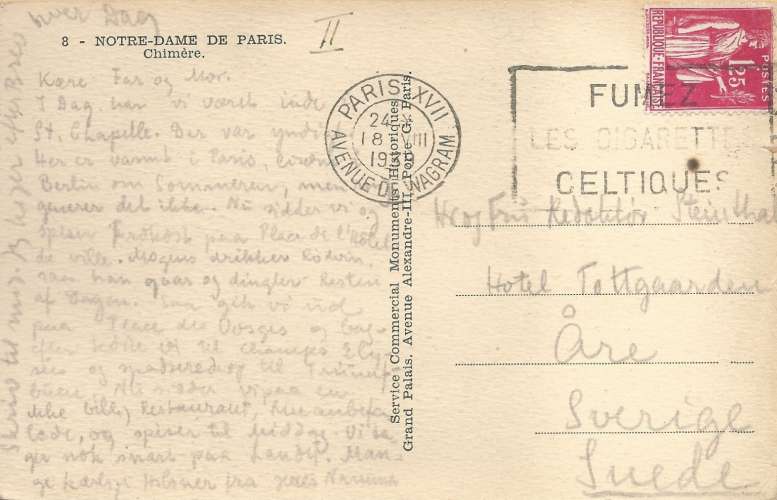 8 - NOTRE-DAME DE PARIS.
Chimère.
II
hver Dag
Kære Far og Mor.
I Dag har vi været inde
St. Chapelle. Der var yndi
Her er varmt i Paris, som
Berlin om Sommeren, men
generer det ikke. Nu sidder vi og
spiser Frokost paa Place de l'Hôtel
de ville. Mogens drikker Rødvin,
saa han gaar og dingler Resten
af Dagen. saa gik vi ud
paa Place des Vosges og bag-
til Champs Ely
sées og til Triumf
buen. Nu sidder vi paa
lille billig Restaurant,
og spiser til Middag. Vi ta-
ger nok snart paa Landet. Man-
ge kærlige Hilsner fra Jeres Nanina
Skriv til mig. Jeg higer efter Brev
Service Commercial Monuments Historiques
Grand Palais. Avenue Alexandre-III, Porte G, Paris.
PARIS XVII
24
18 VIII
19
AVENUE DE WAGRAM
FUMEZ
LES CIGARETTES
CELTIQUES
REPUBLIQUE FRANÇAISE
POSTES
1F25
Hr og Fru Redaktør Steinthal
Hotel Tottgaarden
Åre
Sverige
Suede